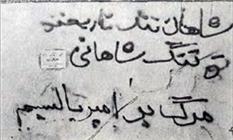 شاهان ننگ تاریخند
و ننگ شاهانی
مرگ بر امپریالیسم